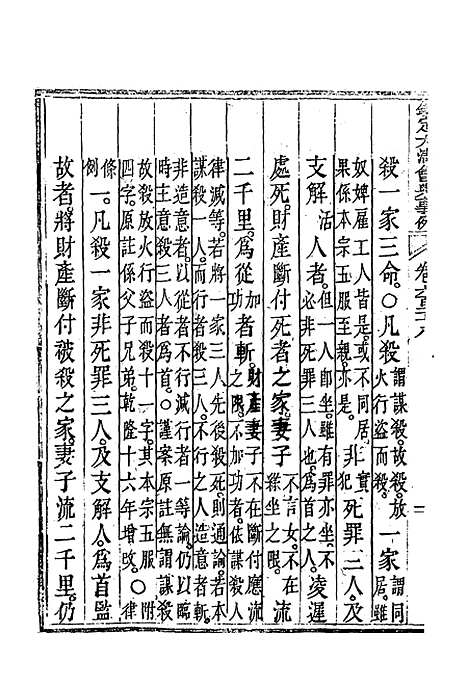 欽定大清會典事例
殺一家三命。○凡殺謂謀殺。故殺。放火行盜而殺。一家謂同居。雖
奴婢雇工人皆是。或不同居。果係本宗五服至親亦是。非實死罪三人。及
支解活人者。但一人即坐。雖有罪亦坐。不必非死罪三人也。為首之人。凌遲
處死。財產斷付死者之家。妻子不言女。不在緣坐之限。流
二千里。為從加功者斬。財產妻子不在斷付應流之限。不加功者。依謀殺人
律減等。若將一家三人先後殺死。則通論。若本謀殺一人。而行者殺三人。不行之人。造意者斬。
非造意者。以從者不行減行者一等論。仍以臨時主意殺三人者為首。○謹案原註無謂謀殺
故殺放火行盜而殺十一字。其本宗五服四字。原註係父子兄弟。乾隆十六年增改。○附律
條例一。凡殺一家非死罪三人。及支解人。為首監
故者。將財產斷付被殺之家。妻子流二千里。仍